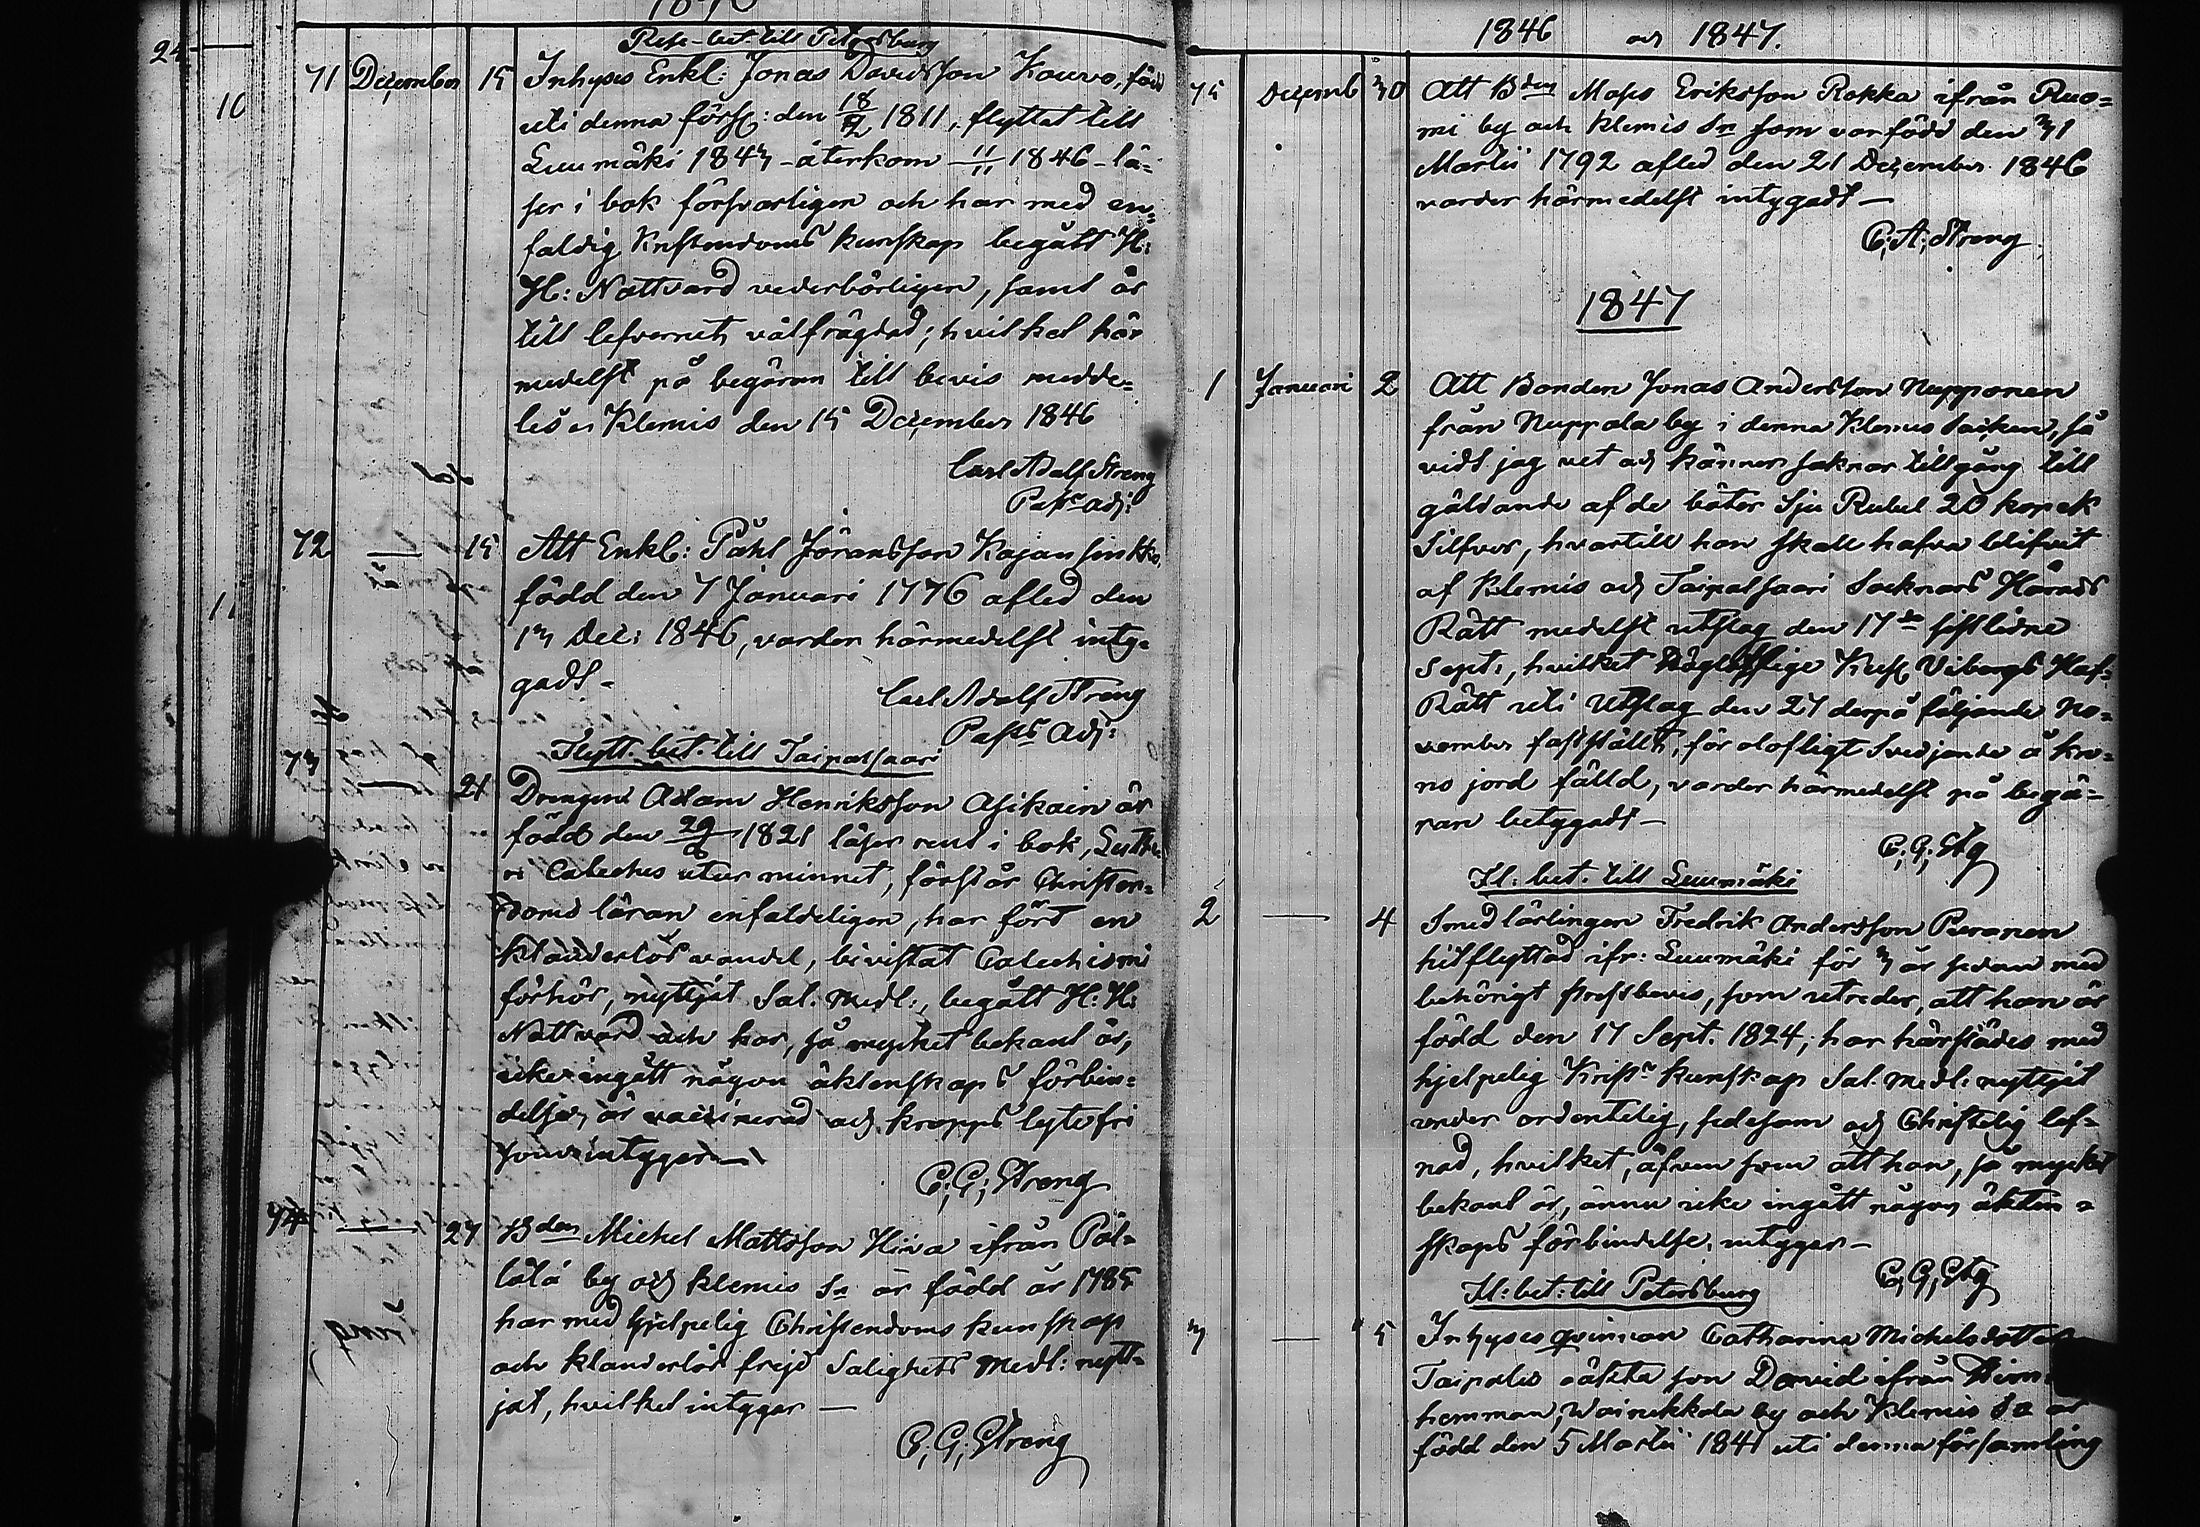 1846
Rese-bet. till Petersburg
71 December 15 Inhyses Enkl: Jonas Davidsson Kouvo, född
uti denna förs: den 18/2 1811, flyttat till
Luumäki 1843 - återkom 11/11 1846 - lä-
ser i bok försvarligen och har med en-
faldig Kristendoms kunskap begått H:
H: Nattvard vederbörligen, samt är
till lefvernet välfrägdad; hvilket här
medelst på begäran till bevis medde-
les Klemis den 15 December 1846
Carl Adolf Streng
Past: adj:
72 — 15 Att Enkl: Påhl Jöransson Kajansinkko,
född den 7 Januari 1776 afled den
13 Dec: 1846, varder härmedelst inty-
gadt -
Carl Adolf Streng
Past: Adj:
Flytt. bet. till Taipalsaari
73 — 21 Drengen Adam Henriksson Asikain är
född den 29/6 1821 läser rent i bok, Luthe-
ri Catechis utur minnet, förstår Christen-
doms läran enfaldeligen, har fört en
klanderlös vandel, bivistat Catechismi
förhör, nyttjat Sal. Medl:, begått H: H:
Nattvard och har, så mycket bekant är,
icke ingått någon äktenskaps förbin-
delse, är vaccinerad och kropps lyte fri
som intygar —
C: G: Streng
74 — 27 Bden Michel Mattsson Hiva ifrån Päl-
lälä by och Klemis Sn är född år 1785
har med hjelpelig Christendoms kunskap
och klanderlös frejd Salighets Medl: nytt-
jat, hvilket intygar —
C: G: Streng
1846 och 1847.
75 Decemb 30 Att Bden Mats Eriksson Rokka ifrån Ruo-
mi by och Klemis Sn som var född den 31
Martii 1792 afled den 21 December 1846
varder härmedelst intygadt —
C: A: Streng
1847
1 Januari 2 Att Bonden Jonas Andersson Nupponen
från Nuppola by i denna Klemis Socken, så
vidt jag vet och känner saknar tillgång till
gäldande af de böter Sju Rubel 20 kopek
Silfver, hvartill han skall hafva blifvit
af Klemis och Taipalsaari Socknars Härads
Rätt medelst utslag den 17de sistledne
Sept:, hvilket Högloflige Kejs Viborgs Hof-
Rätt uti Utslag den 27 derpå följande No-
vember fastställt, för olofligt Svedjande å kro-
no jord fälld, varder härmedelst på begä-
ran betygadt —
C: G: Stg
Fl: bet. till Luumäki
2 — 4 Smedlärlingen Fredrik Andersson Peronen
hitflyttad ifr: Luumäki för 3 år sedan med
behörigt prestbevis, som utreder, att han är
född den 17 Sept. 1824, har härstädes med
hjelpelig Krist: kunskap Sal. Medl: nyttjat
under ordentelig, sedesam och Christelig lef-
nad, hvilket, äfven som att han, så mycket
bekant är, ännu icke ingått någon äkten-
skaps förbindelse, intygar —
C: G: Stg
Fl: bet: till Petersburg
3 — 5 Inhyses qvinnan Catharina Michelsdotter
Taipales oäkta son David ifrån
hemman, Wainikkala by och Klemis Sn är
född den 5 Martii 1841 uti denna församling